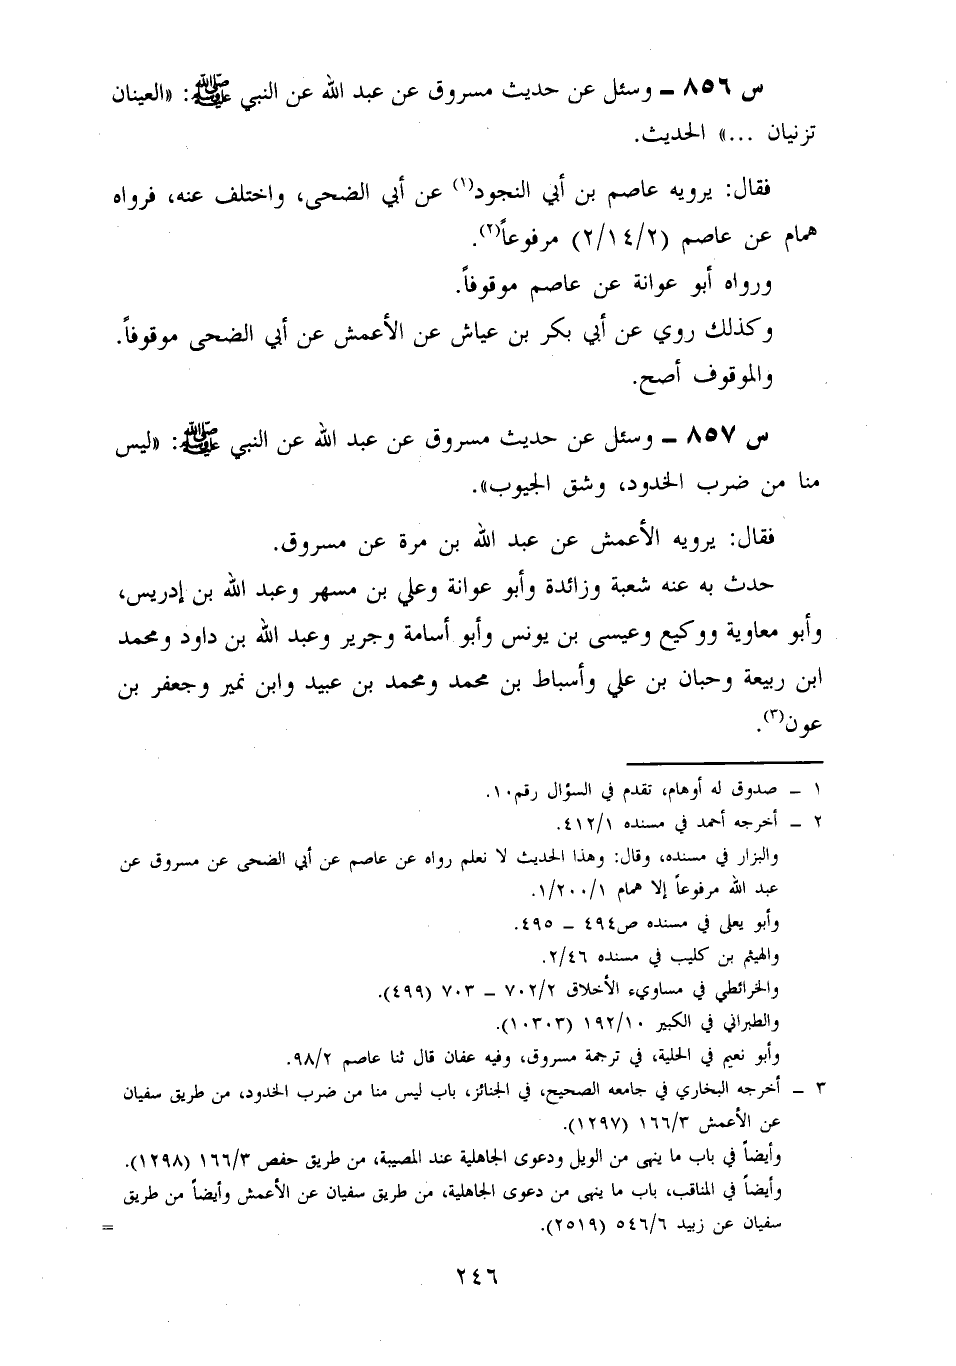 س ٨٥٦ ـ وسئل عن حديث مسروق عن عبد الله عن النبي ﷺ: «العينان
تزنيان ...» الحديث.
فقال: يرويه عاصم بن أبي النجود(١) عن أبي الضحى، واختلف عنه، فرواه
همام عن عاصم (٢/١٤/٢) مرفوعاً(٢).
ورواه أبو عوانة عن عاصم موقوفاً.
وكذلك روي عن أبي بكر بن عياش عن الأعمش عن أبي الضحى موقوفاً.
والموقوف أصح.
س ٨٥٧ ـ وسئل عن حديث مسروق عن عبد الله عن النبي ﷺ: «ليس
منا من ضرب الخدود، وشق الجيوب».
فقال: يرويه الأعمش عن عبد الله بن مرة عن مسروق.
حدث به عنه شعبة وزائدة وأبو عوانة وعلي بن مسهر وعبد الله بن إدريس،
وأبو معاوية ووكيع وعيسى بن يونس وأبو أسامة وجرير وعبد الله بن داود ومحمد
ابن ربيعة وحبان بن علي وأسباط بن محمد ومحمد بن عبيد وابن نمير وجعفر بن
عون(٣).
١ ـ صدوق له أوهام، تقدم في السؤال رقم١٠.
٢ ـ أخرجه أحمد في مسنده ٤١٢/١.
والبزار في مسنده، وقال: وهذا الحديث لا نعلم رواه عن عاصم عن أبي الضحى عن مسروق عن
عبد الله مرفوعاً إلا همام ١/٢٠٠/١.
وأبو يعلى في مسنده ص٤٩٤ ـ ٤٩٥.
والهيثم بن كليب في مسنده ٢/٤٦.
والخرائطي في مساويء الأخلاق ٧٠٢/٢ ـ ٧٠٣ (٤٩٩).
والطبراني في الكبير ١٩٢/١٠ (١٠٣٠٣).
وأبو نعيم في الحلية، في ترجمة مسروق، وفيه عفان قال ثنا عاصم ٩٨/٢.
٣ ـ أخرجه البخاري في جامعه الصحيح، في الجنائز، باب ليس منا من ضرب الخدود، من طريق سفيان
عن الأعمش ١٦٦/٣ (١٢٩٧).
وأيضاً في باب ما ينهى من الويل ودعوى الجاهلية عند المصيبة، من طريق حفص ١٦٦/٣ (١٢٩٨).
وأيضاً في المناقب، باب ما ينهى من دعوى الجاهلية، من طريق سفيان عن الأعمش وأيضاً من طريق
سفيان عن زبيد ٥٤٦/٦ (٢٥١٩). =
٢٤٦